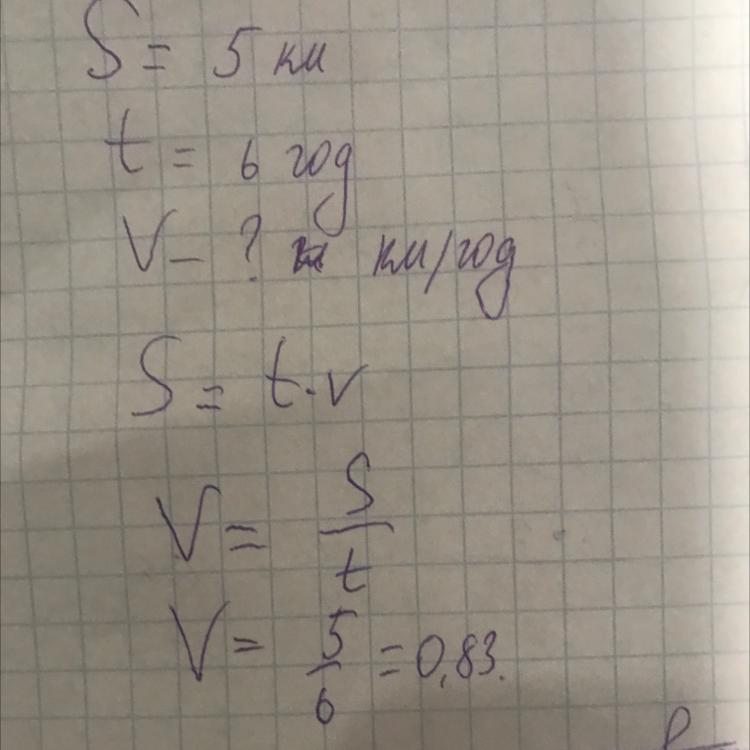 S = 5 км
t = 6 год
V - ? км/год
S = t · v
V = S/t
V = 5/6 = 0,83.